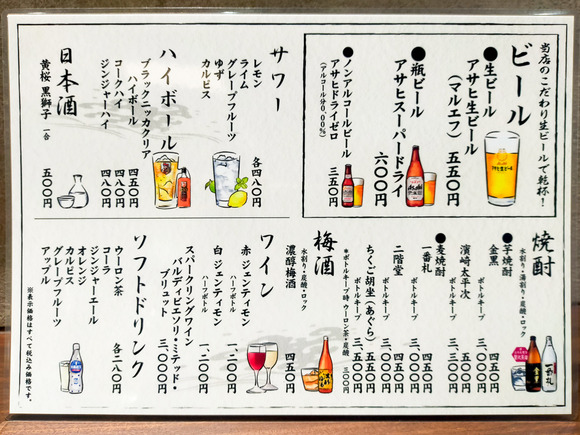 ビール
当店のこだわり生ビールで乾杯!
●生ビール
アサヒ生ビール
(マルエフ) 五五〇円
●瓶ビール
アサヒスーパードライ
六〇〇円
●ノンアルコールビール
アサヒドライゼロ
(アルコール分0.00%) 三五〇円
サワー
レモン
ライム
グレープフルーツ
ゆず
カルピス
各四八〇円
ハイボール
ブラックニッカクリア
ハイボール 四五〇円
コークハイ 四八〇円
ジンジャーハイ 四八〇円
日本酒
黄桜 黒獅子 一合 五〇〇円
焼酎
水割り・湯割り・炭酸・ロック
●芋焼酎
金黒 四五〇円
ボトルキープ 三、〇〇〇円
濱崎太平次 五五〇円
ボトルキープ
●麦焼酎
一番札 四五〇円
ボトルキープ 三、〇〇〇円
二階堂
ボトルキープ
ちくご胡坐(あぐら)
ボトルキープ
*ボトルキープ時 ウーロン茶・炭酸 三〇〇円
梅酒
水割り・炭酸・ロック
濃醇梅酒 四五〇円
ワイン
赤 ジェンティモン
ハーフボトル 一、二〇〇円
白 ジェンティモン
ハーフボトル 一、二〇〇円
スパークリングワイン
バルディビエソ・リミテッド・
ブリュット 三、〇〇〇円
ソフトドリンク
ウーロン茶
コーラ
ジンジャーエール
オレンジ
カルピス
グレープフルーツ
アップル
各二八〇円
※表示価格はすべて税込み価格です。